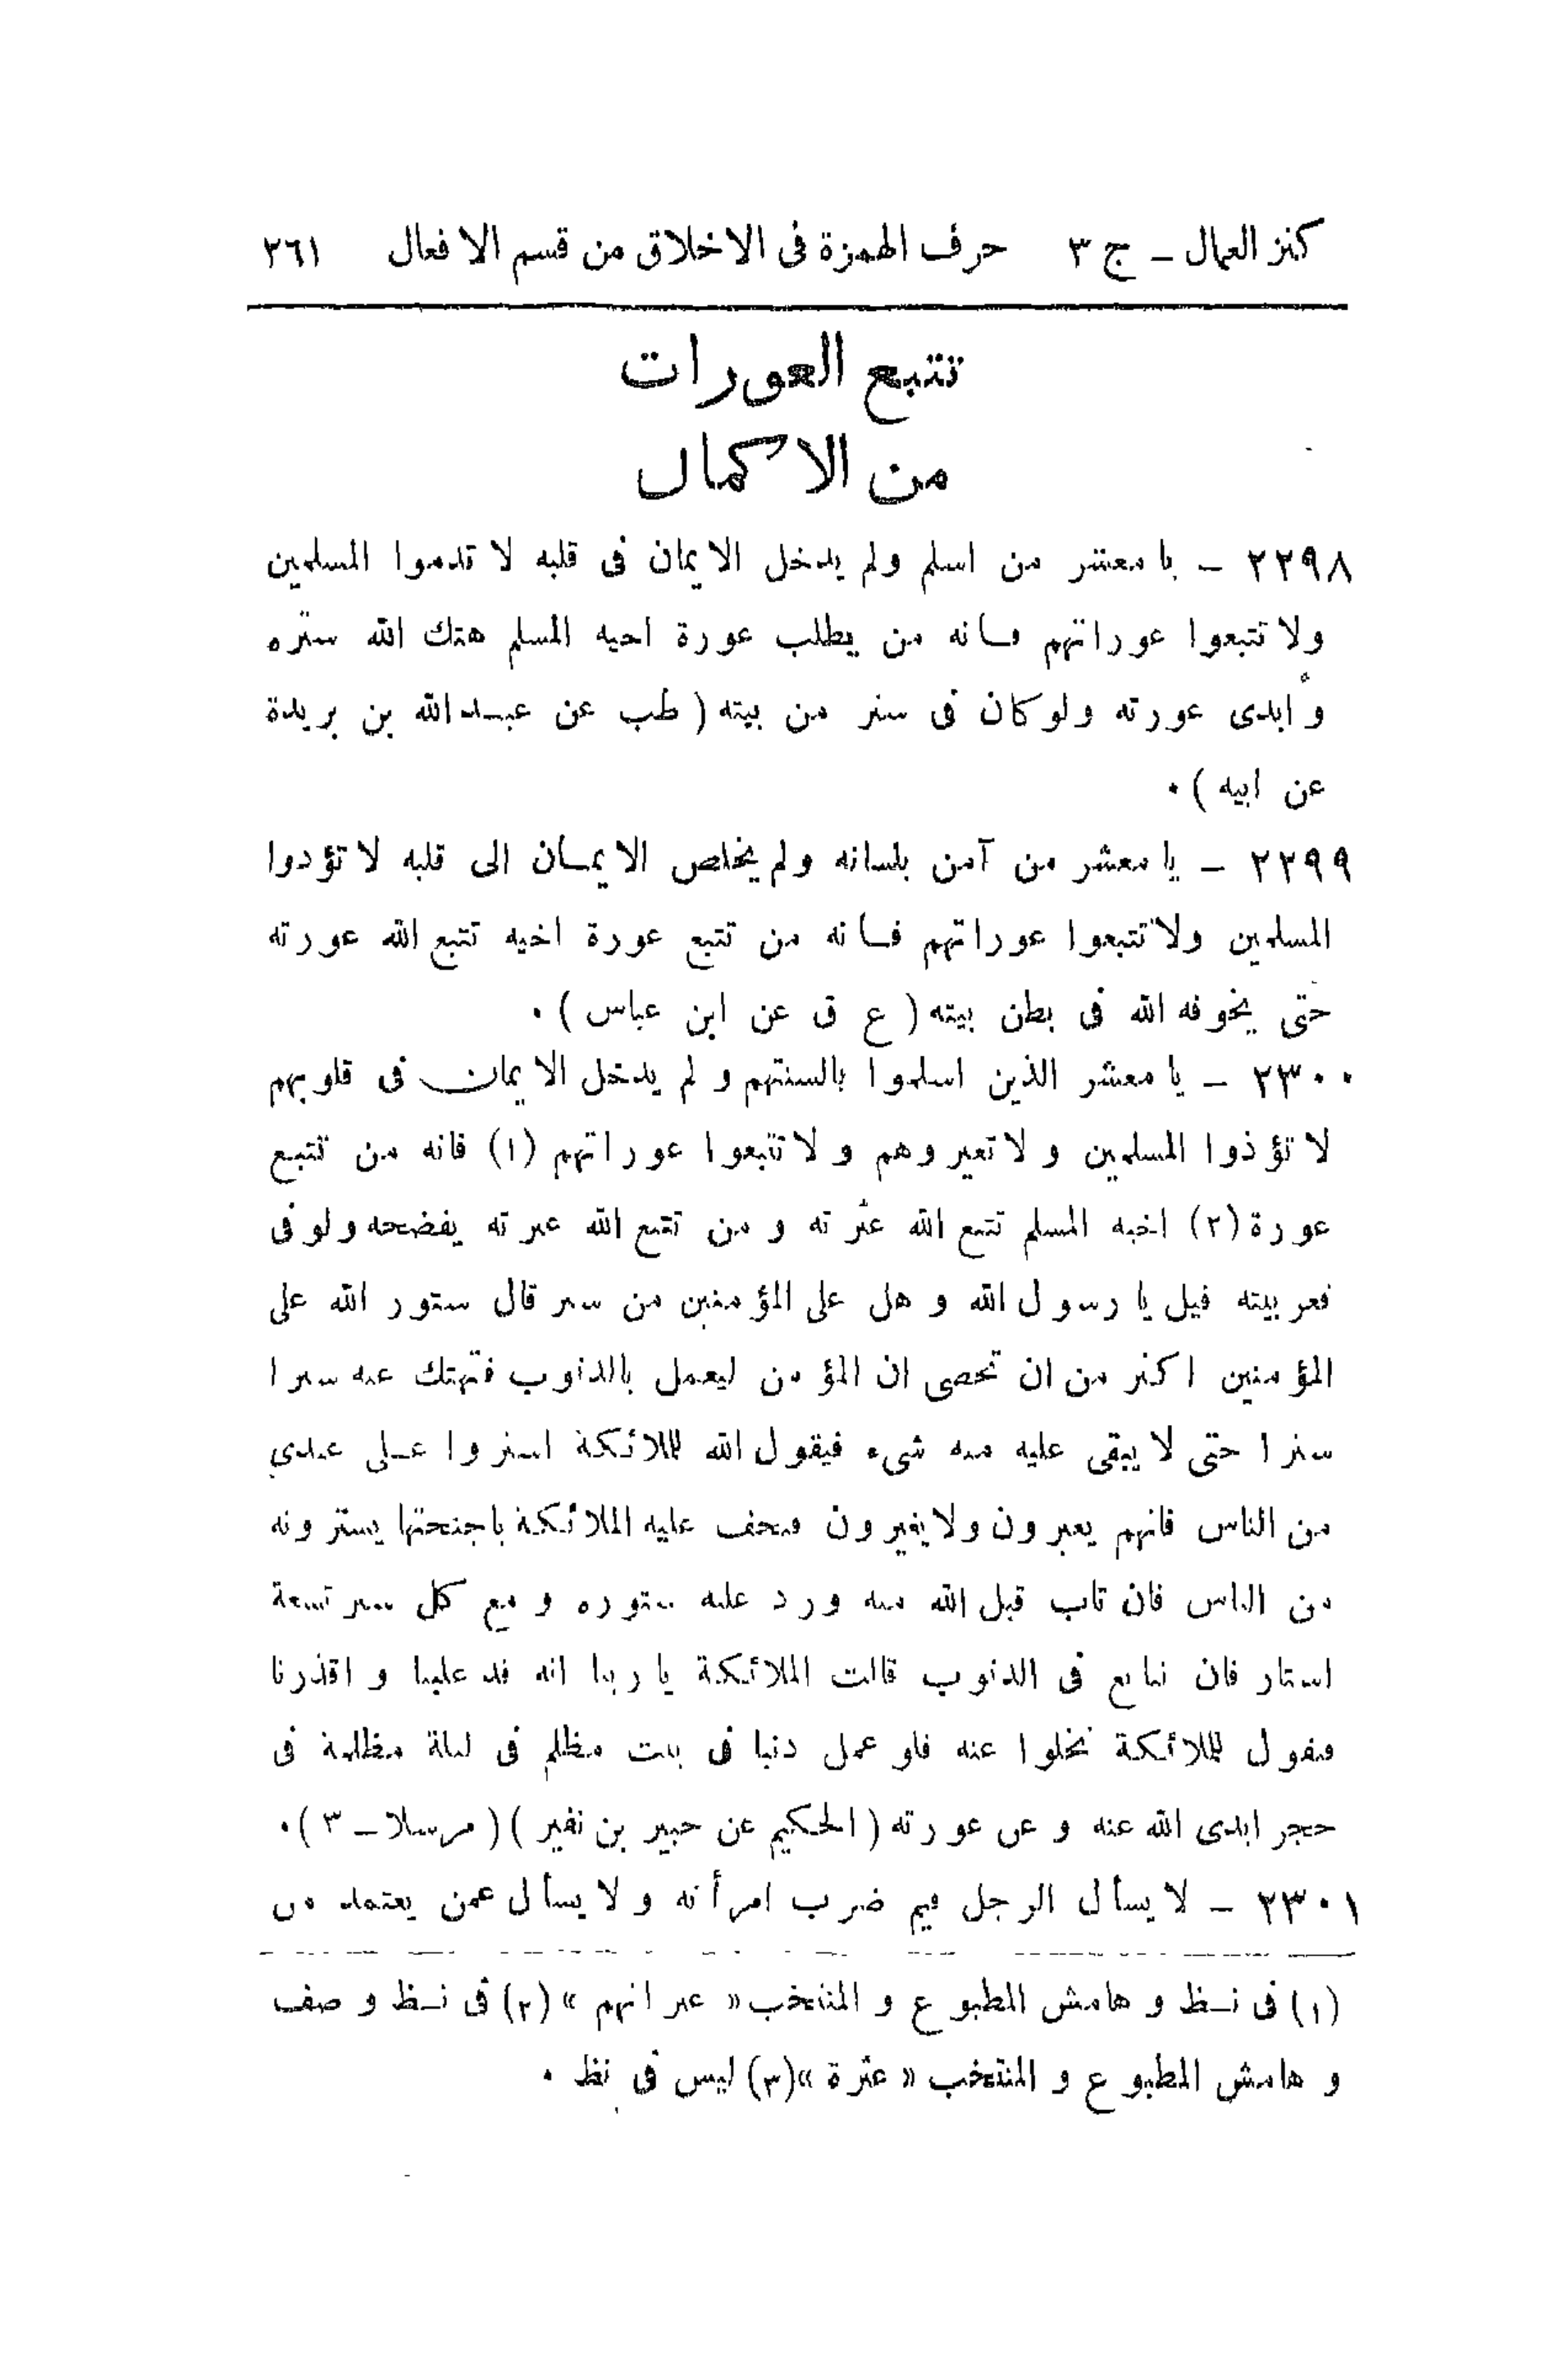 كنز العمال ـ ج ٣ حرف الهمزة فى الاخلاق من قسم الافعال ٣٦١
تتبع العورات
من الاكمال
٢٢٩٨ ـ يا معشر من اسلم ولم يدخل الايمان فى قلبه لا تذموا المسلمين
ولا تتبعوا عوراتهم فانه من يطلب عورة اخيه المسلم هتك الله ستره
وأبدى عورته ولو كان فى ستر من بيته ( طب عن عبد الله بن بريدة
عن ابيه ) ٠
٢٢٩٩ ـ يا معشر من آمن بلسانه ولم يخلص الايمان الى قلبه لا تؤذوا
المسلمين ولا تتبعوا عوراتهم فانه من تتبع عورة اخيه تتبع الله عورته
حتى يخوفه الله فى بطن بيته ( ع ق عن ابن عباس ) ٠
٢٣٠٠ ـ يا معشر الذين اسلموا بالسنتهم و لم يدخل الايمان فى قلوبهم
لا تؤذوا المسلمين و لا تعيروهم و لا تتبعوا عوراتهم (١) فانه من تتبع
عورة (٢) اخيه المسلم تتبع الله عثرته و من تتبع الله عثرته يفضحه ولو فى
قعر بيته قيل يا رسول الله و هل على المؤمنين من ستر قال ستور الله على
المؤمنين اكثر من ان تحصى ان المؤمن ليعمل بالذنوب فتهتك عنه سترا
سترا حتى لا يبقى عليه منه شىء فيقول الله للملائكة استروا على عبدى
من الناس فانهم يعيرون ولا يغيرون فتحف عليه الملائكة باجنحتها يسترونه
من الناس فان تاب قبل الله منه ورد عليه ستوره و مع كل ستر تسعة
استار فان تتابع فى الذنوب قالت الملائكة يا ربنا انه قد غلبنا و اقذرنا
فيقول للملائكة تخلوا عنه فلو عمل ذنبا فى بيت مظلم فى ليلة مظلمة فى
حجر ابدى الله عنه و عن عورته ( الحكيم عن جبير بن نفير ) ( مرسلا ـ ٣ ) ٠
٢٣٠١ ـ لا يسأل الرجل فيم ضرب امرأته و لا يسأل عمن يعتمد من
(١) فى نـظ و هامش المطبوع و المنتخب « عثراتهم » (٢) فى نـظ و صف
و هامش المطبوع و المنتخب « عثرة » (٣) ليس فى نظ ٠